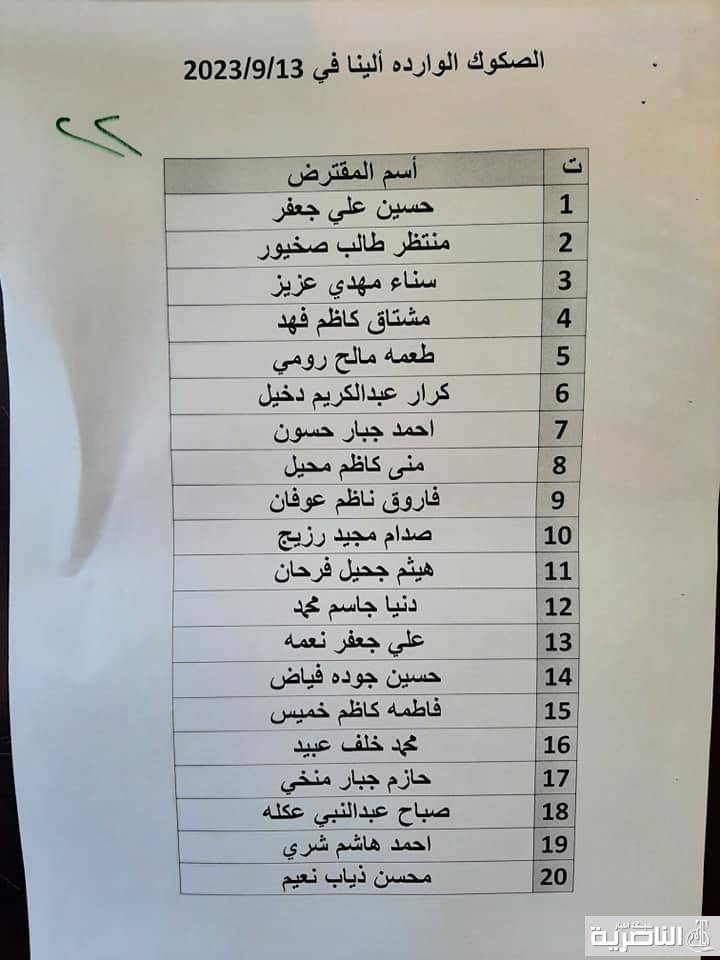 الصكوك الوارده ألينا في 2023/9/13
٢٢
ت أسم المقترض
1 حسين علي جعفر
2 منتظر طالب صخيور
3 سناء مهدي عزيز
4 مشتاق كاظم فهد
5 طعمه مالح رومي
6 كرار عبدالكريم دخيل
7 احمد جبار حسون
8 منى كاظم محيل
9 فاروق ناظم عوفان
10 صدام مجيد رزيج
11 هيثم جحيل فرحان
12 دنيا جاسم محمد
13 علي جعفر نعمه
14 حسين جوده فياض
15 فاطمه كاظم خميس
16 محمد خلف عبيد
17 حازم جبار منخي
18 صباح عبدالنبي عكله
19 احمد هاشم شري
20 محسن ذياب نعيم
شبكة أخبار
الناصرية